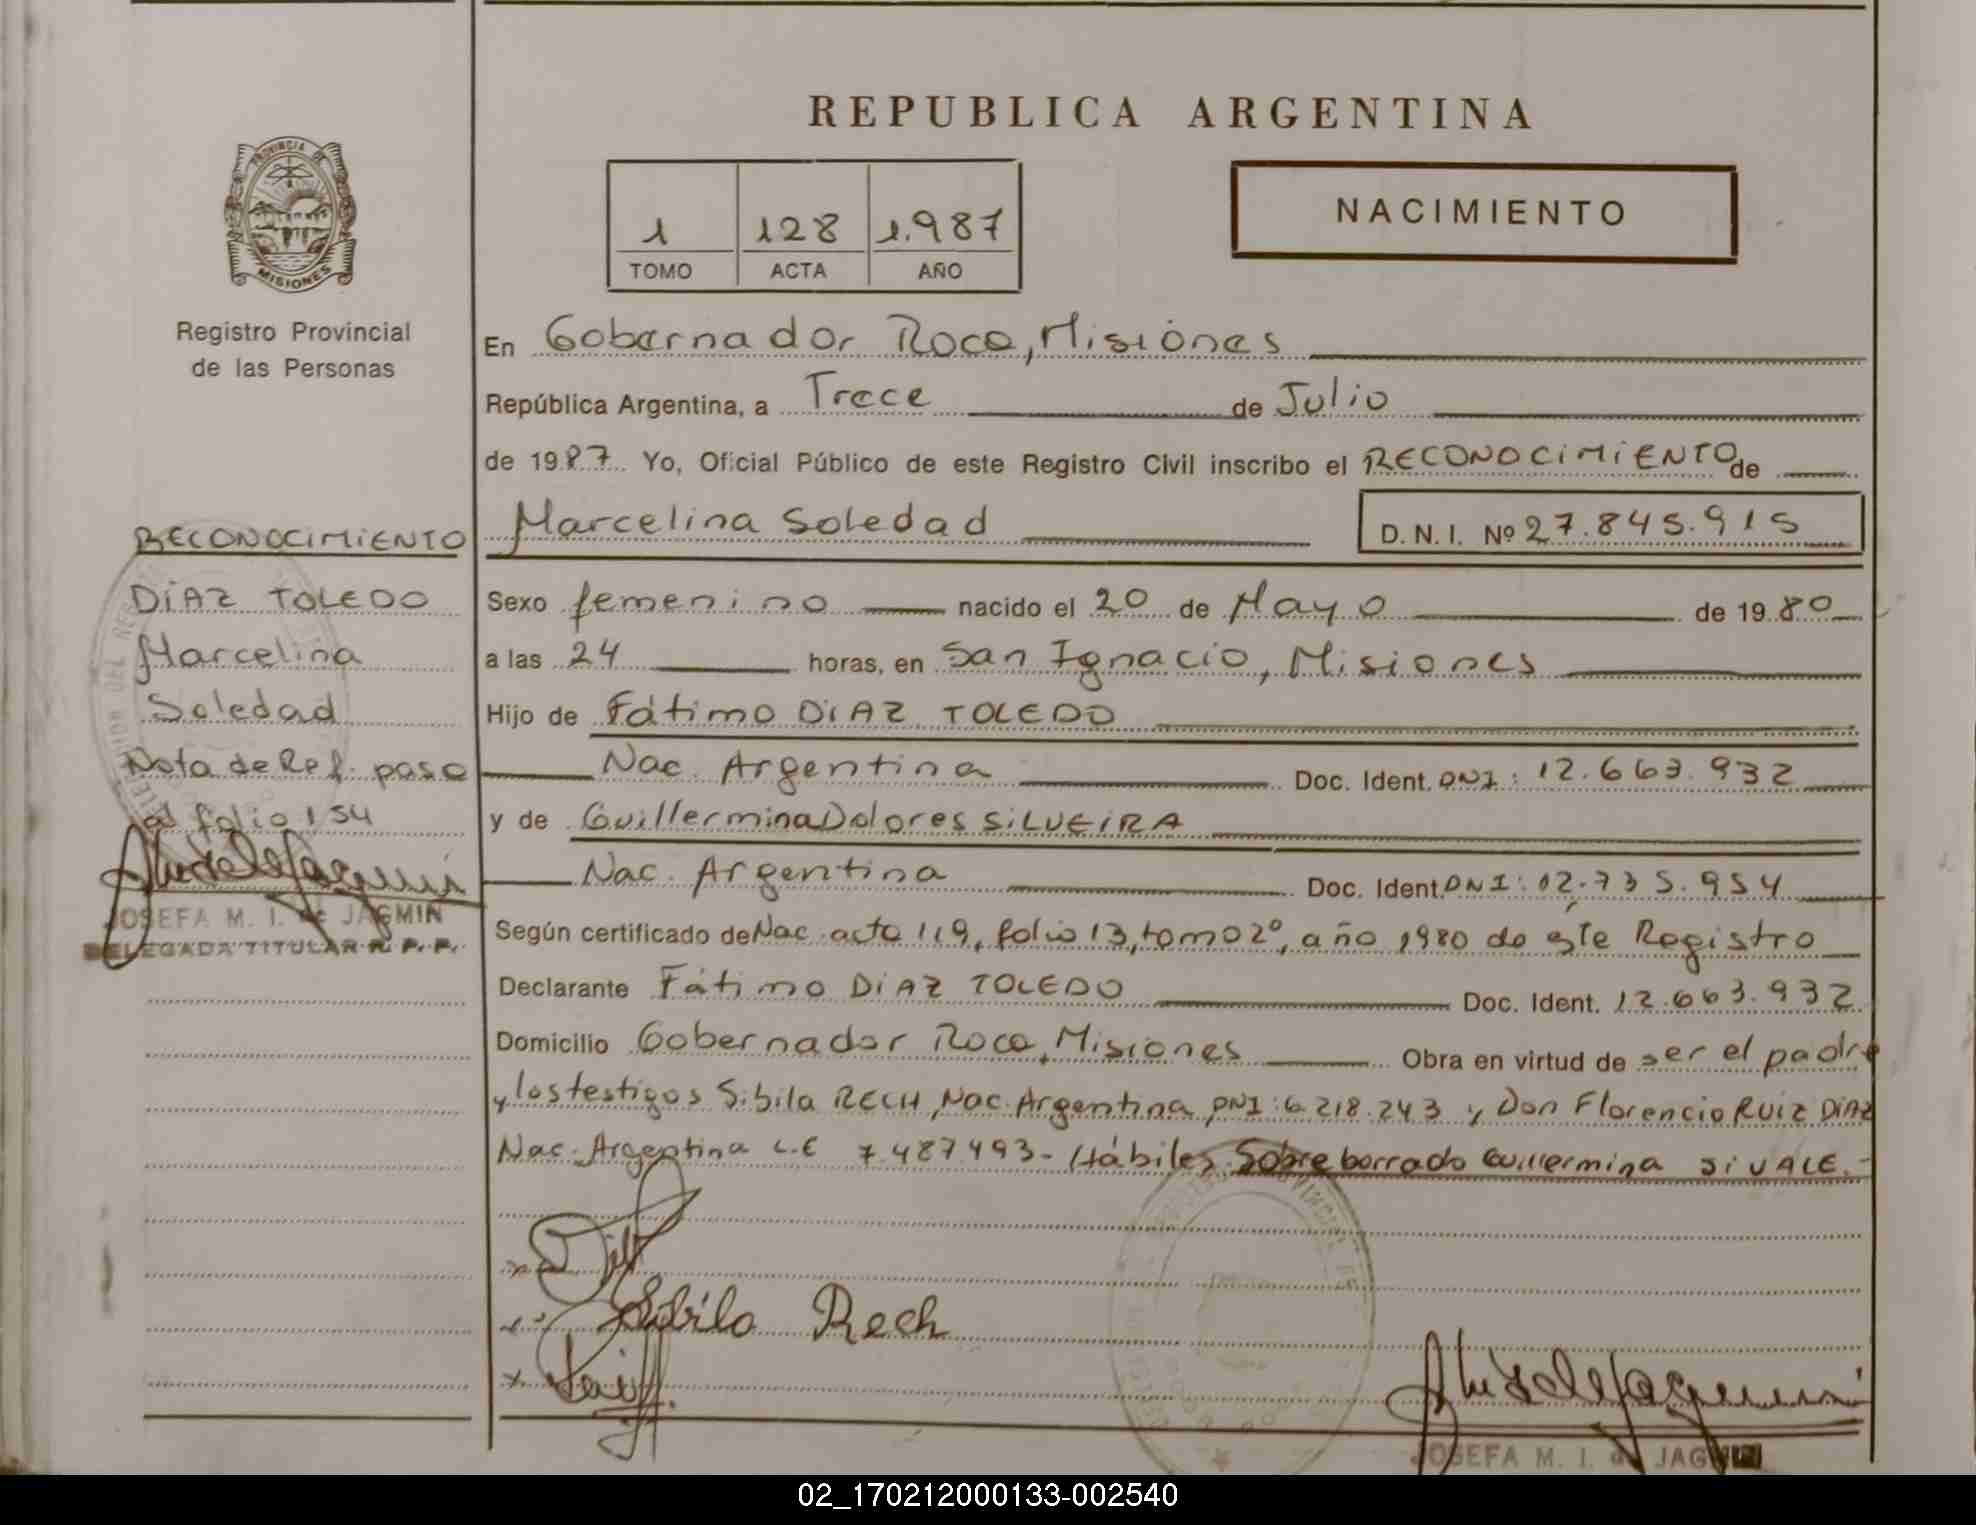 REPUBLICA ARGENTINA
PROVINCIA DE
MISIONES
Registro Provincial
de las Personas
1 128 1.987
TOMO ACTA AÑO
NACIMIENTO
En Gobernador Roca, Misiones
República Argentina, a Trece de Julio
de 1987 Yo, Oficial Público de este Registro Civil inscribo el RECONOCIMIENTO de
Marcelina Soledad D.N.I. Nº 27.845.915
Sexo femenino nacido el 20 de Mayo de 1980
a las 24 horas, en San Ignacio, Misiones
Hijo de Fátimo DIAZ TOLEDO
Nac. Argentina Doc. Ident. DNI: 12.663.932
y de Guillermina Dolores SILVEIRA
Nac. Argentina Doc. Ident. DNI: 12.735.954
Según certificado de Nac. acta 119, folio 13, tomo 2º, año 1980 de este Registro
Declarante Fátimo DIAZ TOLEDO Doc. Ident. 12.663.932
Domicilio Gobernador Roca, Misiones Obra en virtud de ser el padre
y los testigos Sibila RECH, Nac. Argentina, DNI: 6.218.243 y Don Florencio RUIZ DIAZ
Nac. Argentina L.E 7.487493- Hábiles. Sobre borrado Guillermina SI VALE.-
Sibila Rech
JOSEFA M. I. de JAGMIN
RECONOCIMIENTO
DIAZ TOLEDO
Marcelina
Soledad
Nota de Ref. pasa
al folio 154
JOSEFA M. I. de JAGMIN
DELEGADA TITULAR R. P. P.
02_170212000133-002540